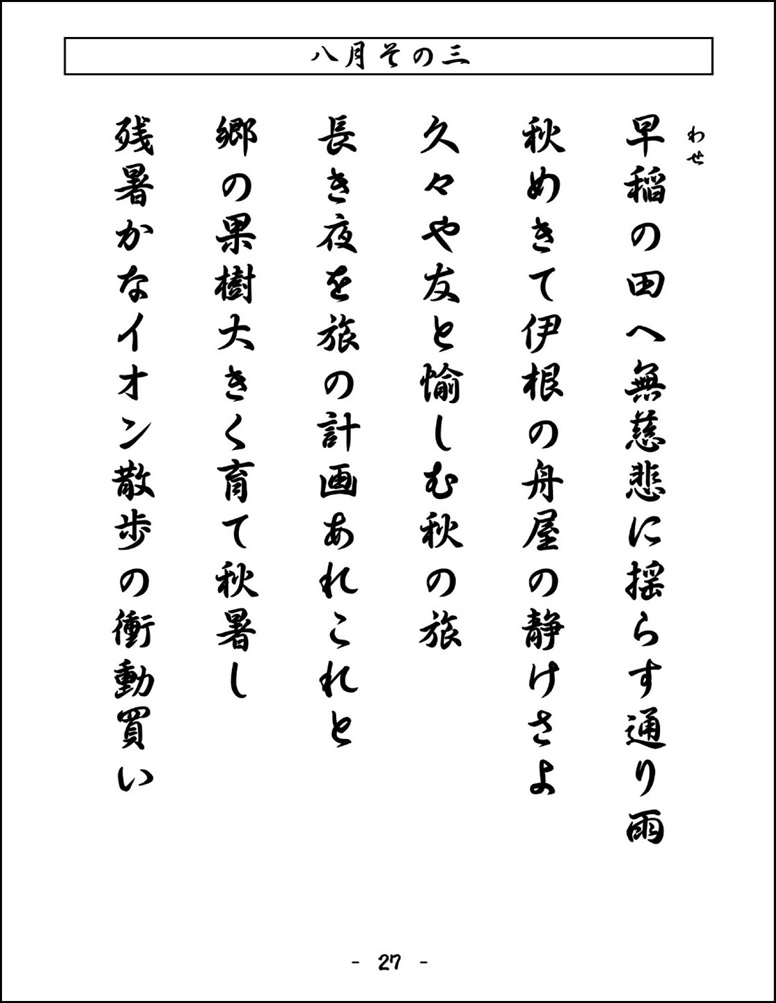 八月その三
わせ
早稲の田へ無慈悲に揺らす通り雨
秋めきて伊根の舟屋の静けさよ
久々や友と愉しむ秋の旅
長き夜を旅の計画あれこれと
郷の果樹大きく育て秋暑し
残暑かなイオン散歩の衝動買い
- 27 -